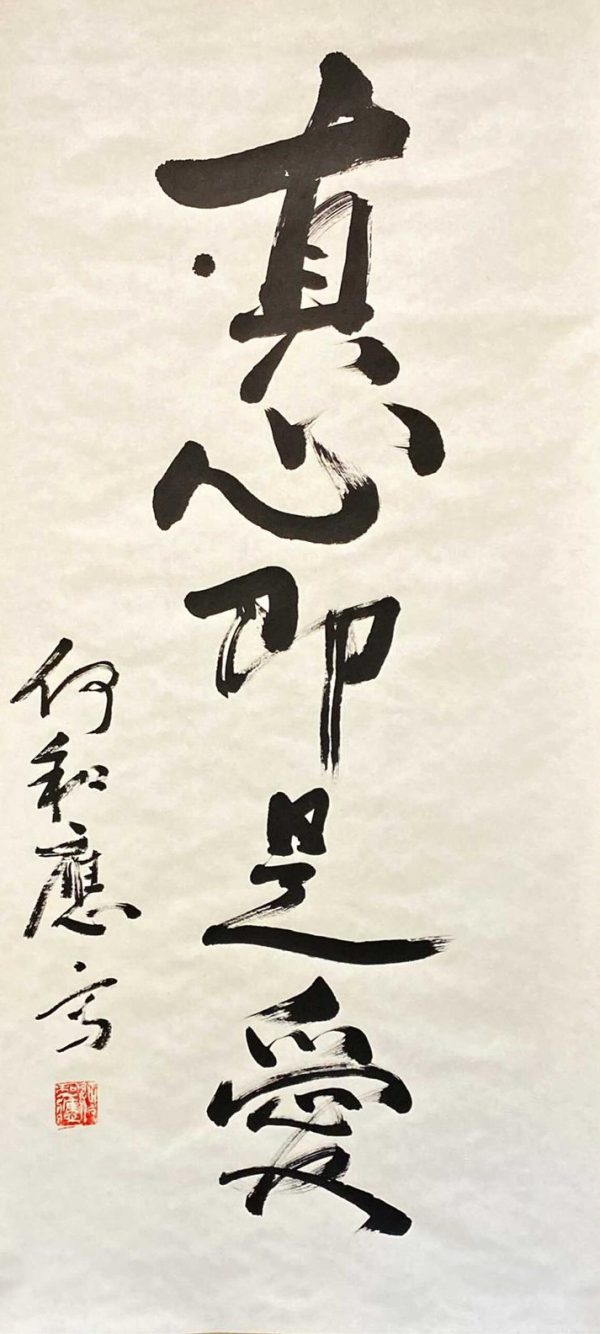 真心即是愛
何和應寫